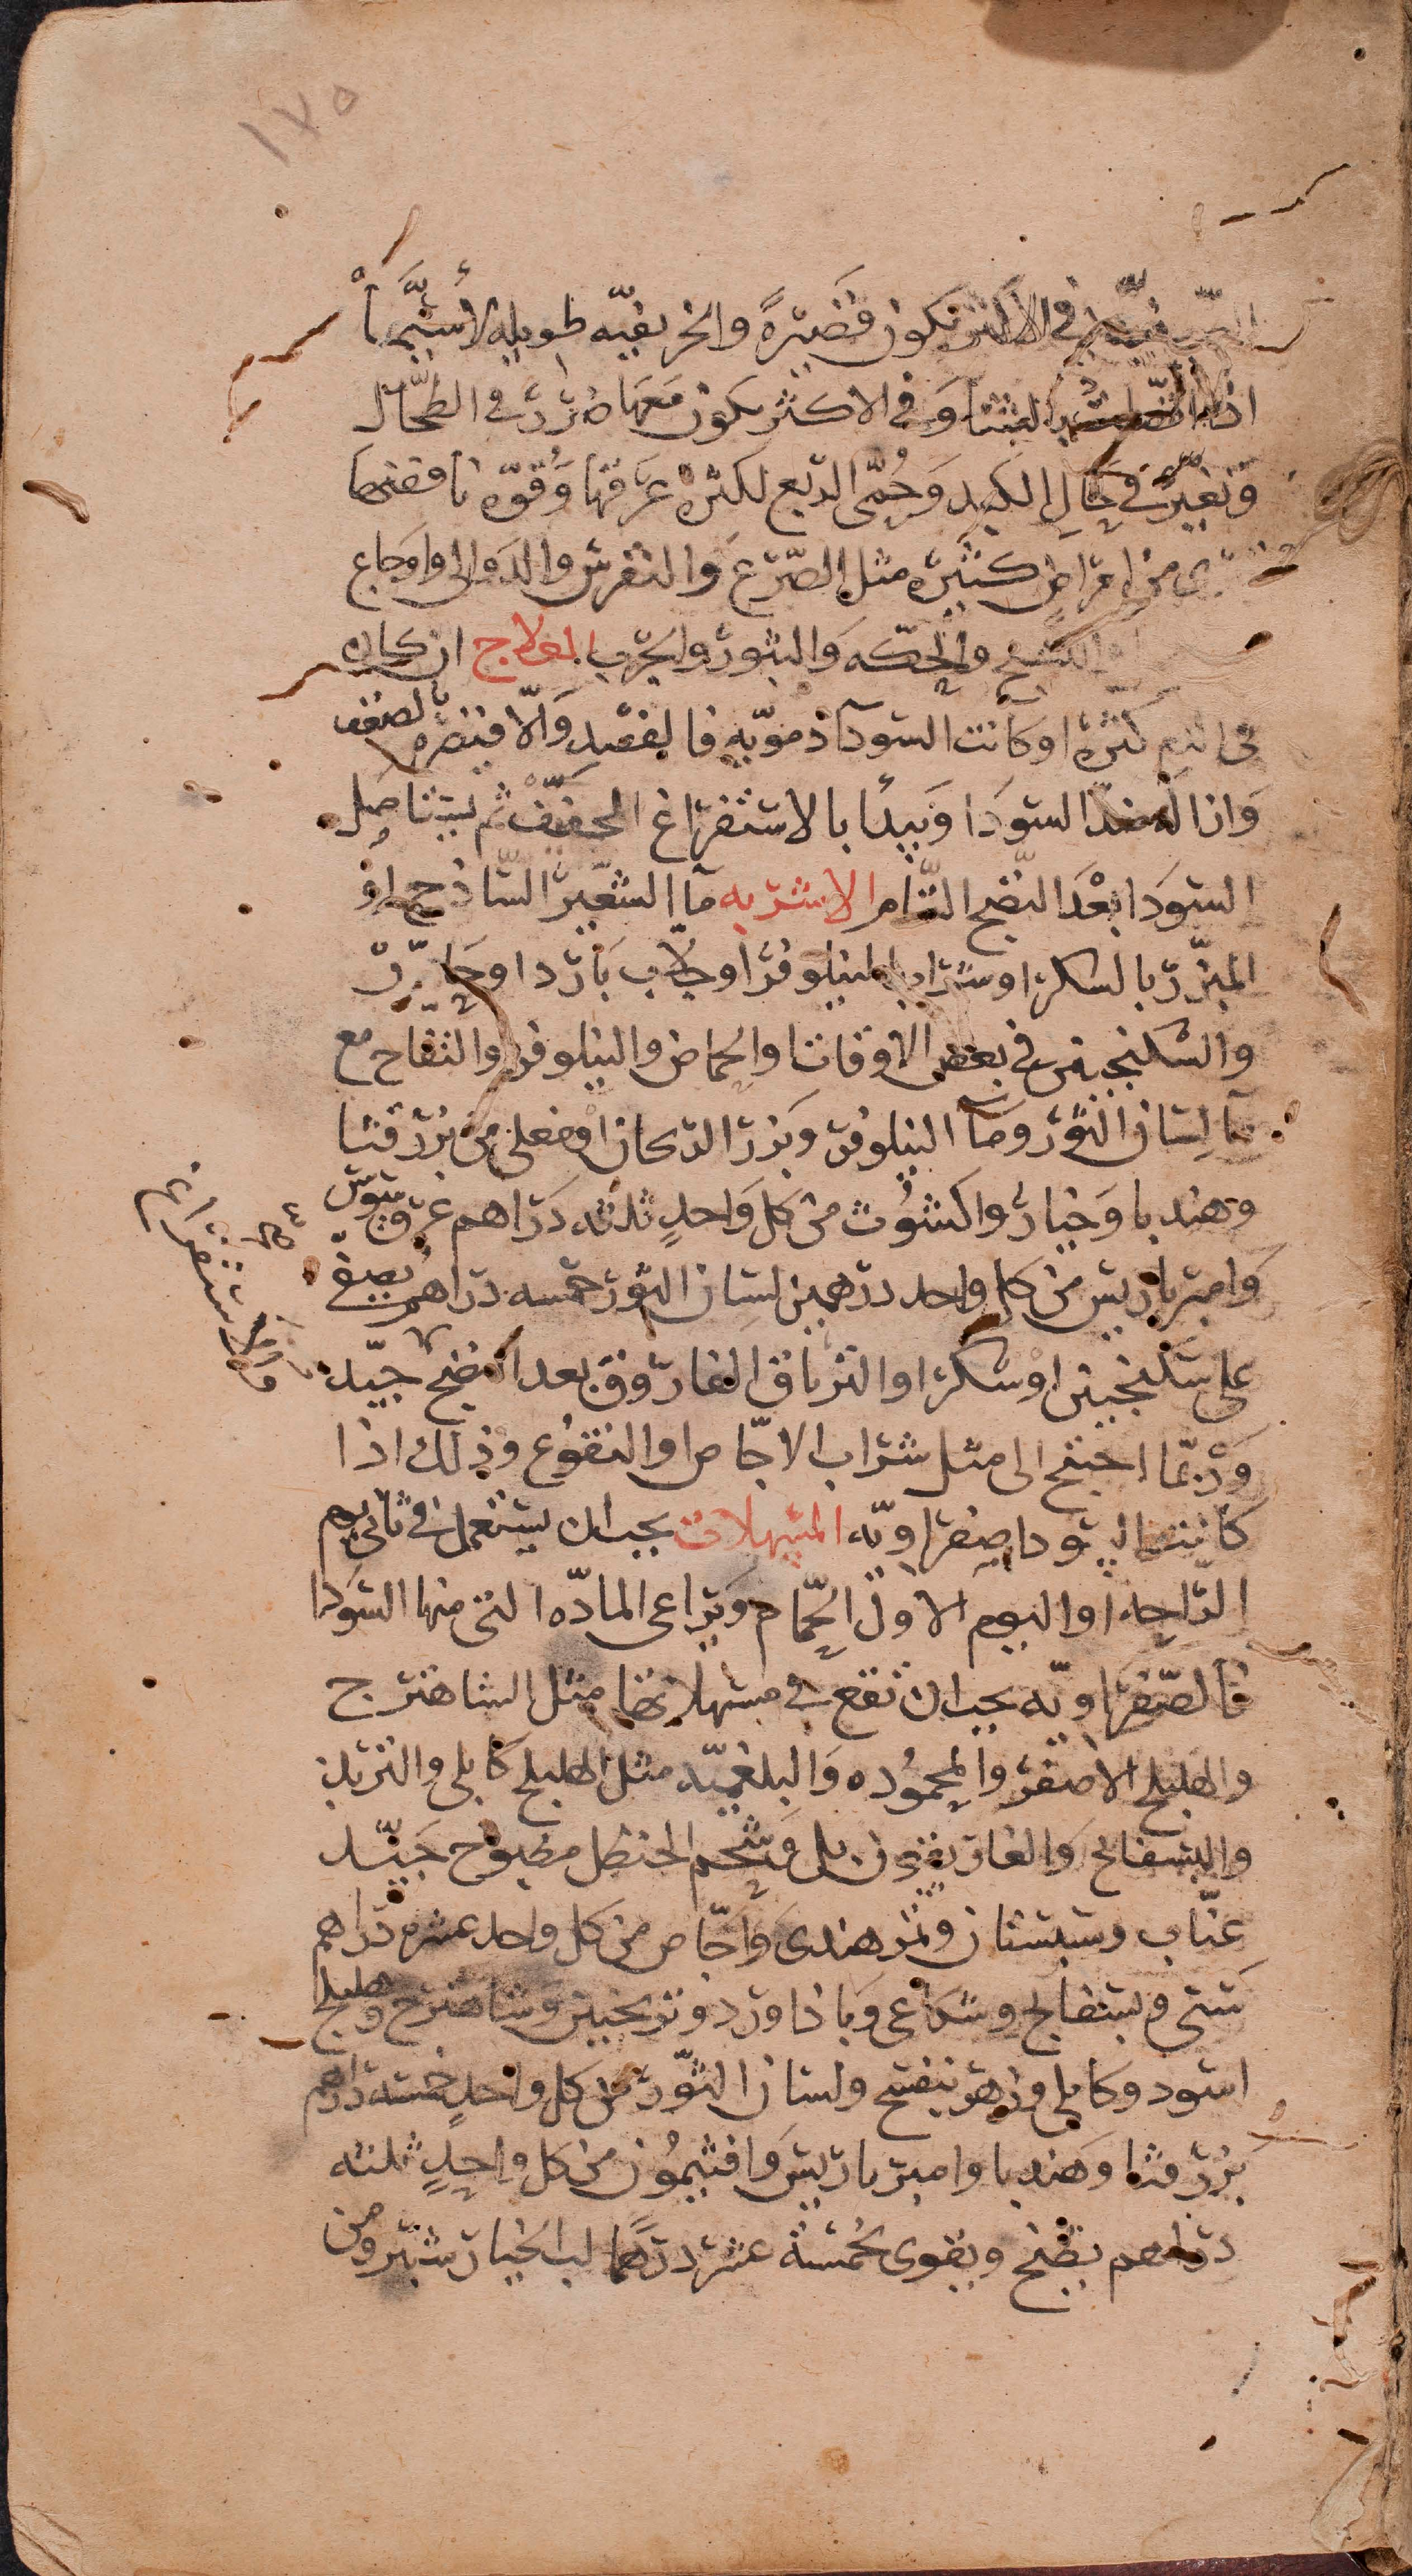 ١٧٥
الصيفيّه في الاكثر تكون قصيرةً والخريفيّه طويله لأسَيَّما
اذا اتصلت بالشتا وَفي الاكثر يكون مَعَها ضرر في الطحّال
وَتغيّرٌ في حَالِ الكبِد وَحُمّى الرّبع لكثرة عَرَقها وَقوّه نافضها
من امراضٍ كثيره مثل الصّرع وَالنقرس والدوالي واوجاع
والتشنج والحكّه وَالبثور والجرب العلاج ان كان
في الدم كثره او كانت السّودآ دمويّه فالفصد وَالّا فيضره بالضعف
وَاذا السّودَا وَيبدأ بالاستفراغ الخفيف ثم يستاصل
السّودَا بعْدَ النّضج التّام الاشربه مآ الشّعير السّاذج او
المبزّر بالسكر او شراب النيلوفر او جلّاب بَارد او حَارّ
والسّكنجبين في بعض الاوقات والحماض والنيلوفر والتفاح مع
مآ لسَان الثور ومآ النيلوفر وبَزر الريحان او مغلى من بزر قثا
وهندبا وَخيار واكشوُث من كل وَاحدٍ ثلثه دَراهم عرق سوس
وَامبرباريس من كل واحد درهمين لسان الثور خمسه دراهم يصفى
على سَكنجبين او سكر او الترياق الفاروق بعد النضج جيّد
وَرُبّما احتيج الى مثل شراب الاجّاص او النقوُع وذلك اذا
كانت السّودا صفراويّه المسهلات يجب ان يستعمل في ثاني يوم
الرّاحه او اليوم الاول الحّمام وَيراعى المادّه التي منها السّودا
فالصّفراويّه يجب ان تقع في مسهلاتها مثل الشاهترج
والهليلج الاصفر والمحموُده وَالبلغميّه مثل الهليلج كابلي والتربد
والبسفايج وَالغاريقون بل وَشحم الحنظل مطبوخ جَيّد
عنّاب وسبستان وتمر هندي وَاجّاص من كل واحد عشره دَراهم
سَنى وبسفايج وشكاعى وَباذاورد وترنجبين وَشاهترج وهليلج
اسود وكابلي وزهر بنفسج ولسان الثّور من كل واحدٍ خمسه دراهم
بَزر قثا وَهندبا وامبرباريس وَافتيموُن من كل واحدٍ ثلثه
دراهم يطبخ ويقوى بخمسَة عشر درهمًا لب الخيار شنبر ومن